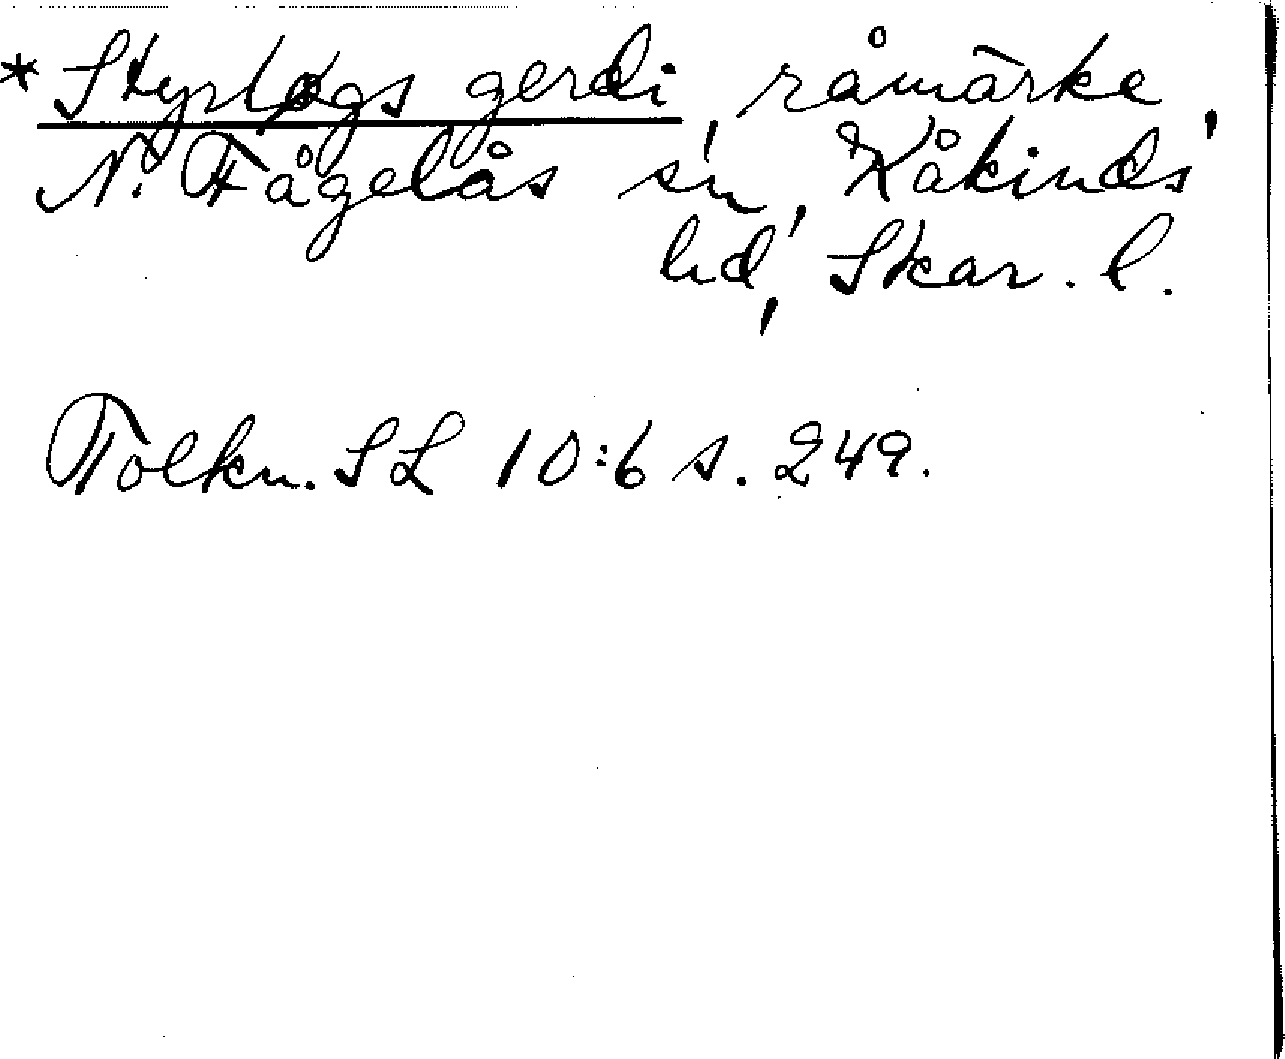 * Styrløgs gerdi, råmärke,
N. Fågelås sn, Kåkinds
hd, Skar. l.
Tolkn. SL 10:6 s. 249.